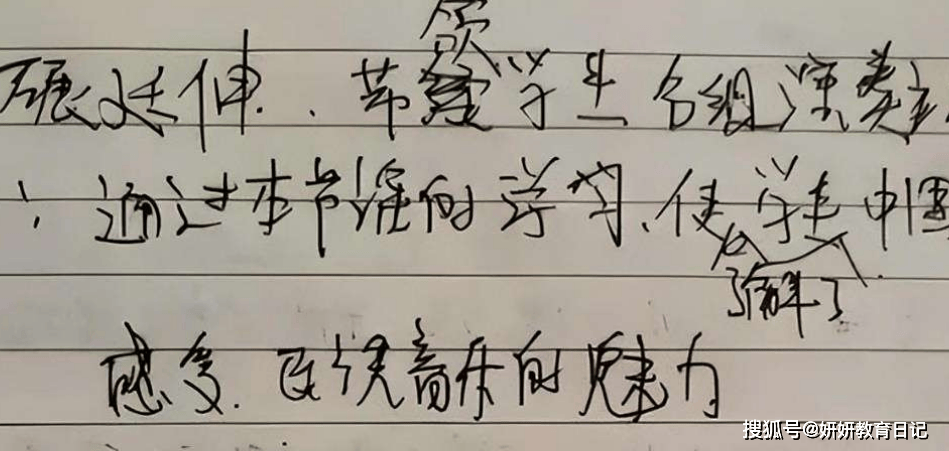 展延伸、带领学生分组演奏
：通过本节课的学习,使学生了解了中国
感受民族音乐的魅力
搜狐号@妍妍教育日记